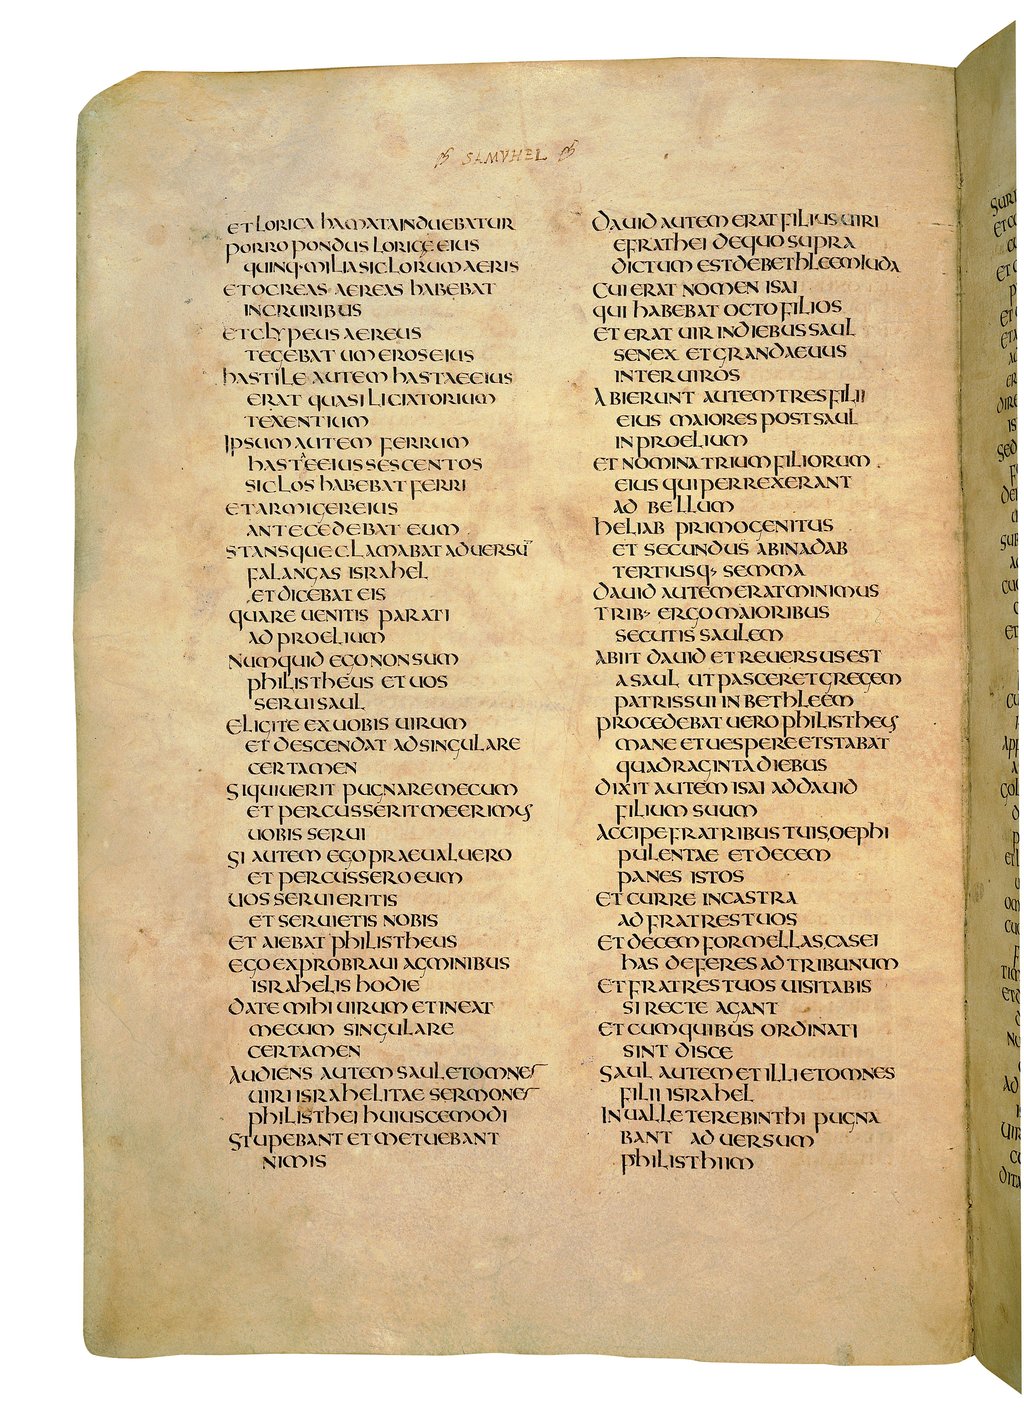 SAMUHEL
ET LORICA hAMATA INDUEBATUR
PORRO PONDUS LORICE EIUS
QUINQ· MILIA SICLORUM AERIS
ET OCREAS AEREAS hABEBAT
IN CRURIBUS
ET CLYPEUS AEREUS
TEGEBAT UMEROS EIUS
hASTILE AUTEM hASTAE EIUS
ERAT QUASI LICIATORIUM
TEXENTIUM
IPSUM AUTEM FERRUM
hASTAE EIUS SESCENTOS
SICLOS hABEBAT FERRI
ET ARMIGER EIUS
ANTECEDEBAT EUM
STANSQUE CLAMABAT ADUERSŪ
FALANGAS ISRAhEL
ET DICEBAT EIS
QUARE UENITIS PARATI
AD PROELIUM
NUMQUID EGO NON SUM
PhILISTHEUS ET UOS
SERUI SAUL
ELIGITE EX UOBIS UIRUM
ET DESCENDAT AD SINGULARE
CERTAMEN
SI QUIUERIT PUGNARE MECUM
ET PERCUSSERIT ME ERIMUS
UOBIS SERUI
SI AUTEM EGO PRAEUALUERO
ET PERCUSSERO EUM
UOS SERUI ERITIS
ET SERUIETIS NOBIS
ET AIEBAT PhILISTHEUS
EGO EXPROBRAUI AGMINIBUS
ISRAhELIS hODIE
DATE MIhI UIRUM ET INEAT
MECUM SINGULARE
CERTAMEN
AUDIENS AUTEM SAUL ET OMNES
UIRI ISRAhELITAE SERMONES
PhILISTHEI hUIUSCEMODI
STUPEBANT ET METUEBANT
NIMIS
DAUID AUTEM ERAT FILIUS UIRI
EFRATHEI DE QUO SUPRA
DICTUM EST DE BETHLEEM IUDA
CUI ERAT NOMEN ISAI
QUI hABEBAT OCTO FILIOS
ET ERAT UIR IN DIEBUS SAUL
SENEX ET GRANDAEUUS
INTER UIROS
ABIERUNT AUTEM TRES FILII
EIUS MAIORES POST SAUL
IN PROELIUM
ET NOMINA TRIUM FILIORUM
EIUS QUI PERREXERANT
AD BELLUM
hELIAB PRIMOGENITUS
ET SECUNDUS ABINADAB
TERTIUSQ· SEMMA
DAUID AUTEM ERAT MINIMUS
TRIB· ERGO MAIORIBUS
SECUTIS SAULEM
ABIIT DAUID ET REUERSUS EST
A SAUL UT PASCERET GREGEM
PATRIS SUI IN BETHLEEM
PROCEDEBAT UERO PhILISTHEUS
MANE ET UESPERE ET STABAT
QUADRAGINTA DIEBUS
DIXIT AUTEM ISAI AD DAUID
FILIUM SUUM
ACCIPE FRATRIBUS TUIS OEPHI
PULENTAE ET DECEM
PANES ISTOS
ET CURRE IN CASTRA
AD FRATRES TUOS
ET DECEM FORMELLAS CASEI
hAS DEFERES AD TRIBUNUM
ET FRATRES TUOS UISITABIS
SI RECTE AGANT
ET CUM QUIBUS ORDINATI
SINT DISCE
SAUL AUTEM ET ILLI ET OMNES
FILII ISRAhEL
IN UALLE TEREBINTHI PUGNA
BANT ADUERSUM
PhILISTHIIM